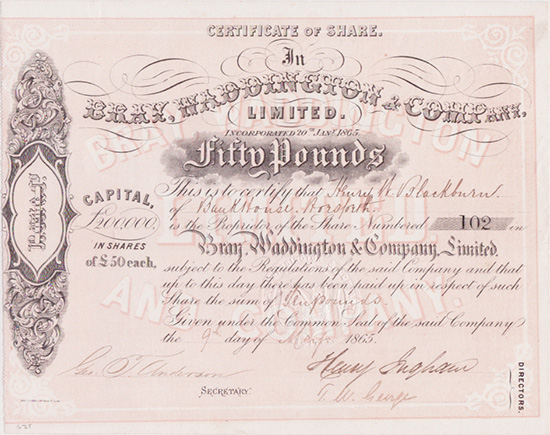 CERTIFICATE OF SHARE.
In
BRAY, WADDINGTON & COMPANY,
LIMITED.
INCORPORATED 20TH JANY 1865.
Fifty Pounds
CAPITAL,
£200,000,
IN SHARES
of £50 each,
This is to certify that Henry W. Blackburn
of Bank House, Horsforth
is the Proprietor of the Share Numbered 102 in
Bray, Waddington & Company, Limited.
subject to the Regulations of the said Company and that
up to this day there has been paid up in respect of such
Share the sum of Ten Pounds.
Given under the Common Seal of the said Company
the 9 day of 1865.
Geo. T. Anderson
SECRETARY
Henry Ingham
T. W. George
DIRECTORS.
BRAY WADDINGTON
AND COMPANY.